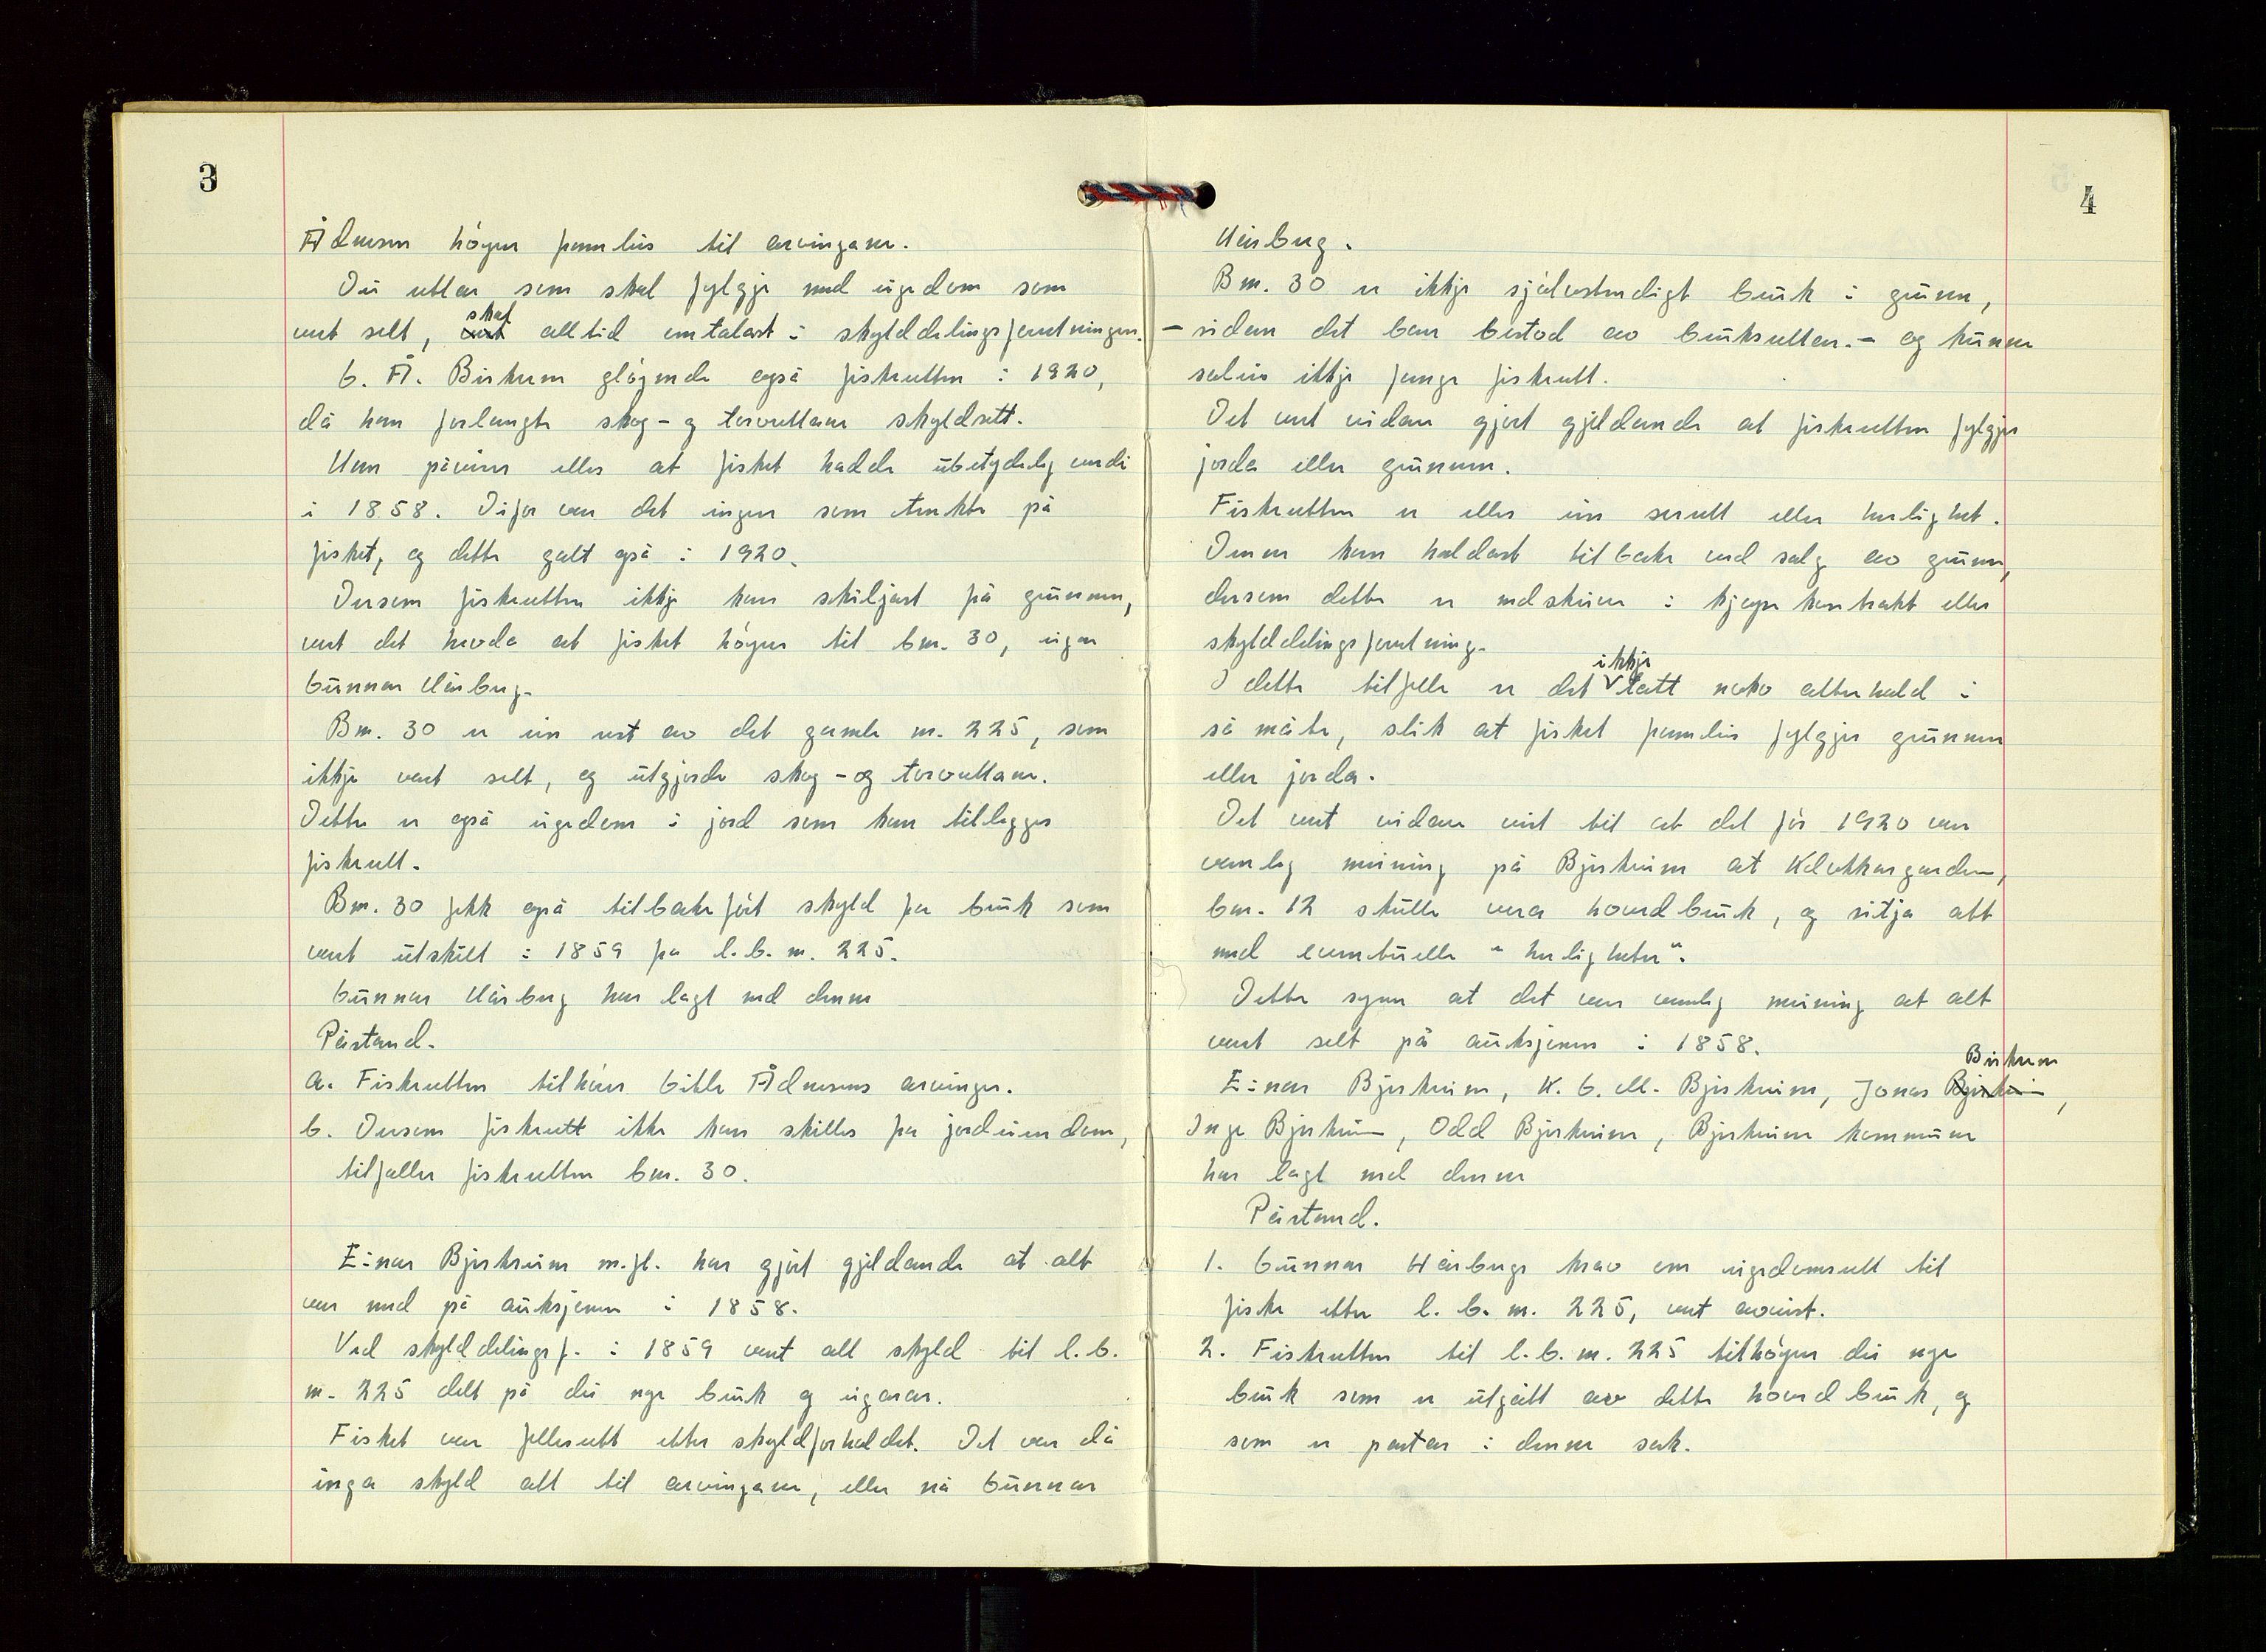 3
Ådnesen höyrer framleis til arvingane.
Dei rettar som skal fylgje med eigedom som
vert selt, vert skal alltid omtalast i skylddelingsforretningen.
G. Å. Birkrem gløymde også fiskretten i 1920,
då han forlangte skog- og torvrettane skyldsett.
Han påviser elles at fisket hadde ubetydeleg verdi
i 1858. Difor var det ingen som tenkte på
fisket, og dette galt også i 1920.
Dersom fiskretten ikkje kan skiljast frå grunnen,
vert det hevda at fisket höyrer til bnr. 30, eigar
Gunnar Hårberg.
Bnr. 30 er ein rest av det gamle nr. 225, som
ikkje vert selt, og utgjorde skog- og torvrettane.
Dette er også eigedom i jord som kan tillegges
fiskrett.
Bnr. 30 fekk også tilbakeført skyld fra bruk som
vert utskilt i 1859 fra l.b.nr. 225.
Gunnar Hårberg har lagt ned denne
Påstand.
a. Fiskretten tilhörer Gitle Ådnesens arvinger.
b. Dersom fiskrett ikke kan skilles fra jordeiendom,
tilfaller fiskretten bnr. 30.
Einar Bjerkreim m.fl. har gjort gjeldande at alt
var med på auksjonen i 1858.
Ved skylddelingsf. i 1859 vert all skyld til l.b.
nr. 225 delt på dei nye bruk og eigarar.
Fisket var fellesrett etter skyldforholdet. Det var då
inga skyld att til arvingane, eller nå Gunnar
4
Hårberg.
Bnr. 30 er ikkje sjølvstendigt bruk i grunn,
- sidan det bare bestod av bruksrettar. - og kunne
saleis ikkje fange fiskrett.
Det vert vidare gjort gjeldande at fiskretten fylgjer
jorda eller grunnen.
Fiskretten er elles ein serrett eller herlighet.
Denne kan haldast tilbake ved salg av grunn,
dersom dette er nedskrive i kjøpekontrakt eller
skylddelingsforretning.
I dette tilfelle er det ikkje tatt noko atterhald i
så måte, slik at fisket framleis fylgjer grunnen
eller jorda.
Det vert vidare vist til at det før 1920 var
vanleg meining på Bjerkreim at Klokkargarden,
bnr. 12 skulle vera hovedbruk, og sitja att
med eventuelle "herligheter".
Dette syner at det var vanleg meining at alt
vart selt på auksjonen i 1858.
Einar Bjerkreim, K. G. M. Bjerkreim, Jonas Bjerkrei Birkrem,
Inge Bjerkreim, Odd Bjerkreim, Bjerkreim kommune
har lagt ned denne
Påstand.
1. Gunnar Hårbergs krav om eigedomsrett til
fiske etter l.b.nr. 225, vert avvist.
2. Fiskretten til l.b.nr. 225 tilhöyrer dei nye
bruk som er utgått av dette hovedbruk, og
som er partar i denne sak.